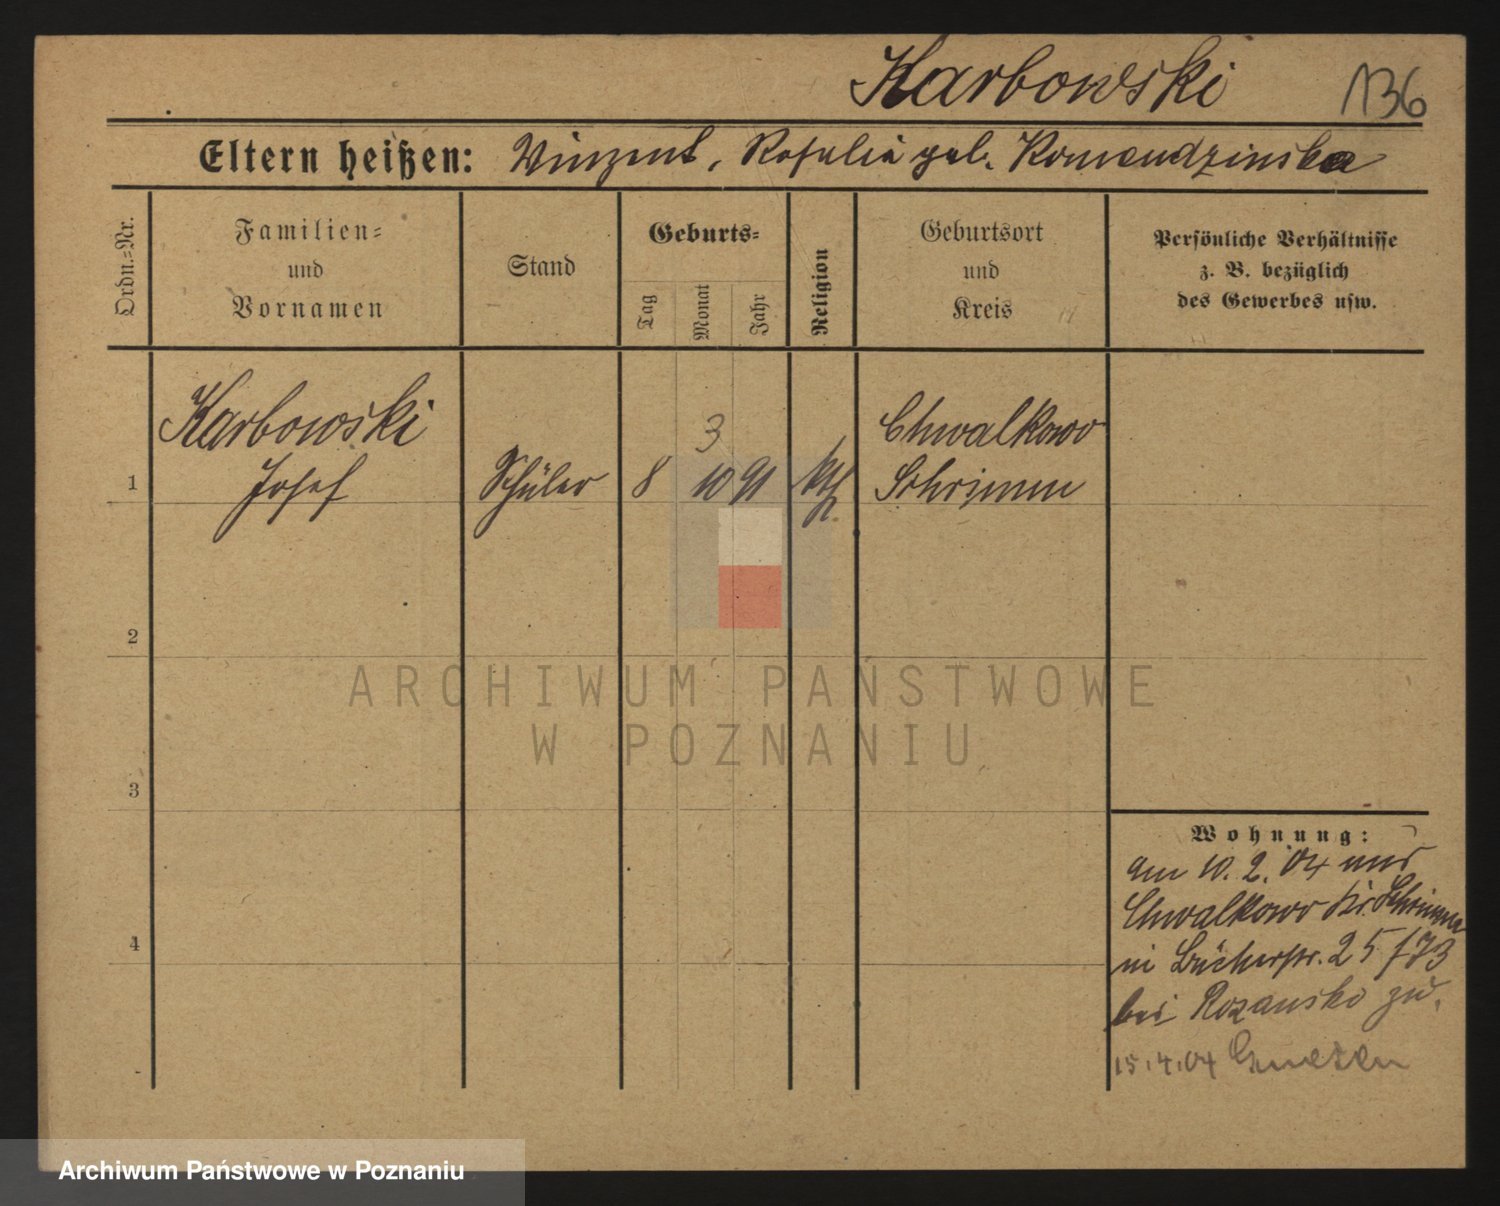 Karbowski 136
Eltern heißen: Vinzent, Rosalia geb. Komendzinska
Ordn.=Nr.
Familien=
und
Vornamen
Stand
Geburts=
Tag
Monat
Jahr
Religion
Geburtsort
und
Kreis
Persönliche Verhältnisse
z. B. bezüglich
des Gewerbes usw.
Karbowski
Josef
1
Schüler
8
3
10
91
kth.
Chwalkowo
Schrimm
2
3
4
Wohnung:
am 10. 2. 04 aus
Chwalkowo Kr. Schrimm
in Bäckerstr. 25/73
bei Rozansko zu.
15.4.04 Gnesen
ARCHIWUM PAŃSTWOWE
W POZNANIU
Archiwum Państwowe w Poznaniu